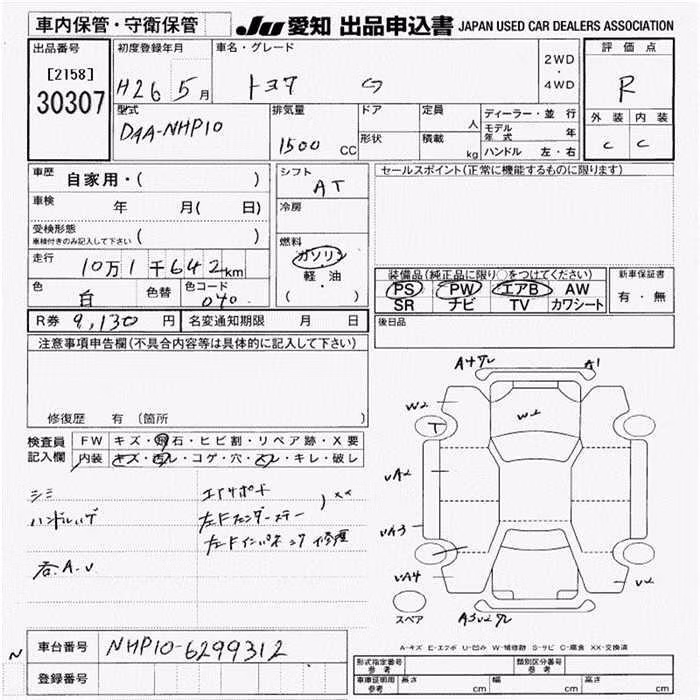 車内保管・守衛保管 JU 愛知 出品申込書 JAPAN USED CAR DEALERS ASSOCIATION
出品番号 初度登録年月 車名・グレード 評価点
[2158] 2WD
30307 H26 5月 トヨタ ・ 4WD R
型式 排気量 ドア 定員 人 ディーラー・並行 外装 内装
DAA-NHP10 1500 CC 形状 積載 kg モデル年式 年 C C
ハンドル 左・右
車歴 自家用・( ) シフト AT セールスポイント(正常に機能するものに限ります)
車検 年 月( 日) 冷房
受検形態 車検付きのみ記入して下さい ( )
燃料
走行 10万1千642km ガソリン
軽・油
( )
装備品(純正品に限り○をつけてください) 新車保証書
色 白 色替 色コード 040 PS PW エアB AW 有・無
SR ナビ TV カワシート
R券 9,130円 名変通知期限 月 日 後日品
注意事項申告欄(不具合内容等は具体的に記入して下さい)
A4 A1
W2 W2
修復歴 有(箇所 )
検査員 FW キズ・飛石・ヒビ割・リペア跡・X要 T
記入欄 内装 キズ・汚レ・コゲ・穴・スレ・キレ・破レ
UA2
シミ
ハンドルハゲ
UA3
各A.U UA4 U2
スペア
A-キズ E-エクボ U-凹み W-補修跡 S-サビ C-腐食 XX-交換済
車台番号 NHP10-6299312
N
登録番号
形式指定番号 参考 類別区分番号 参考
車庫証明用 参考 長さ cm 幅 cm 高さ cm